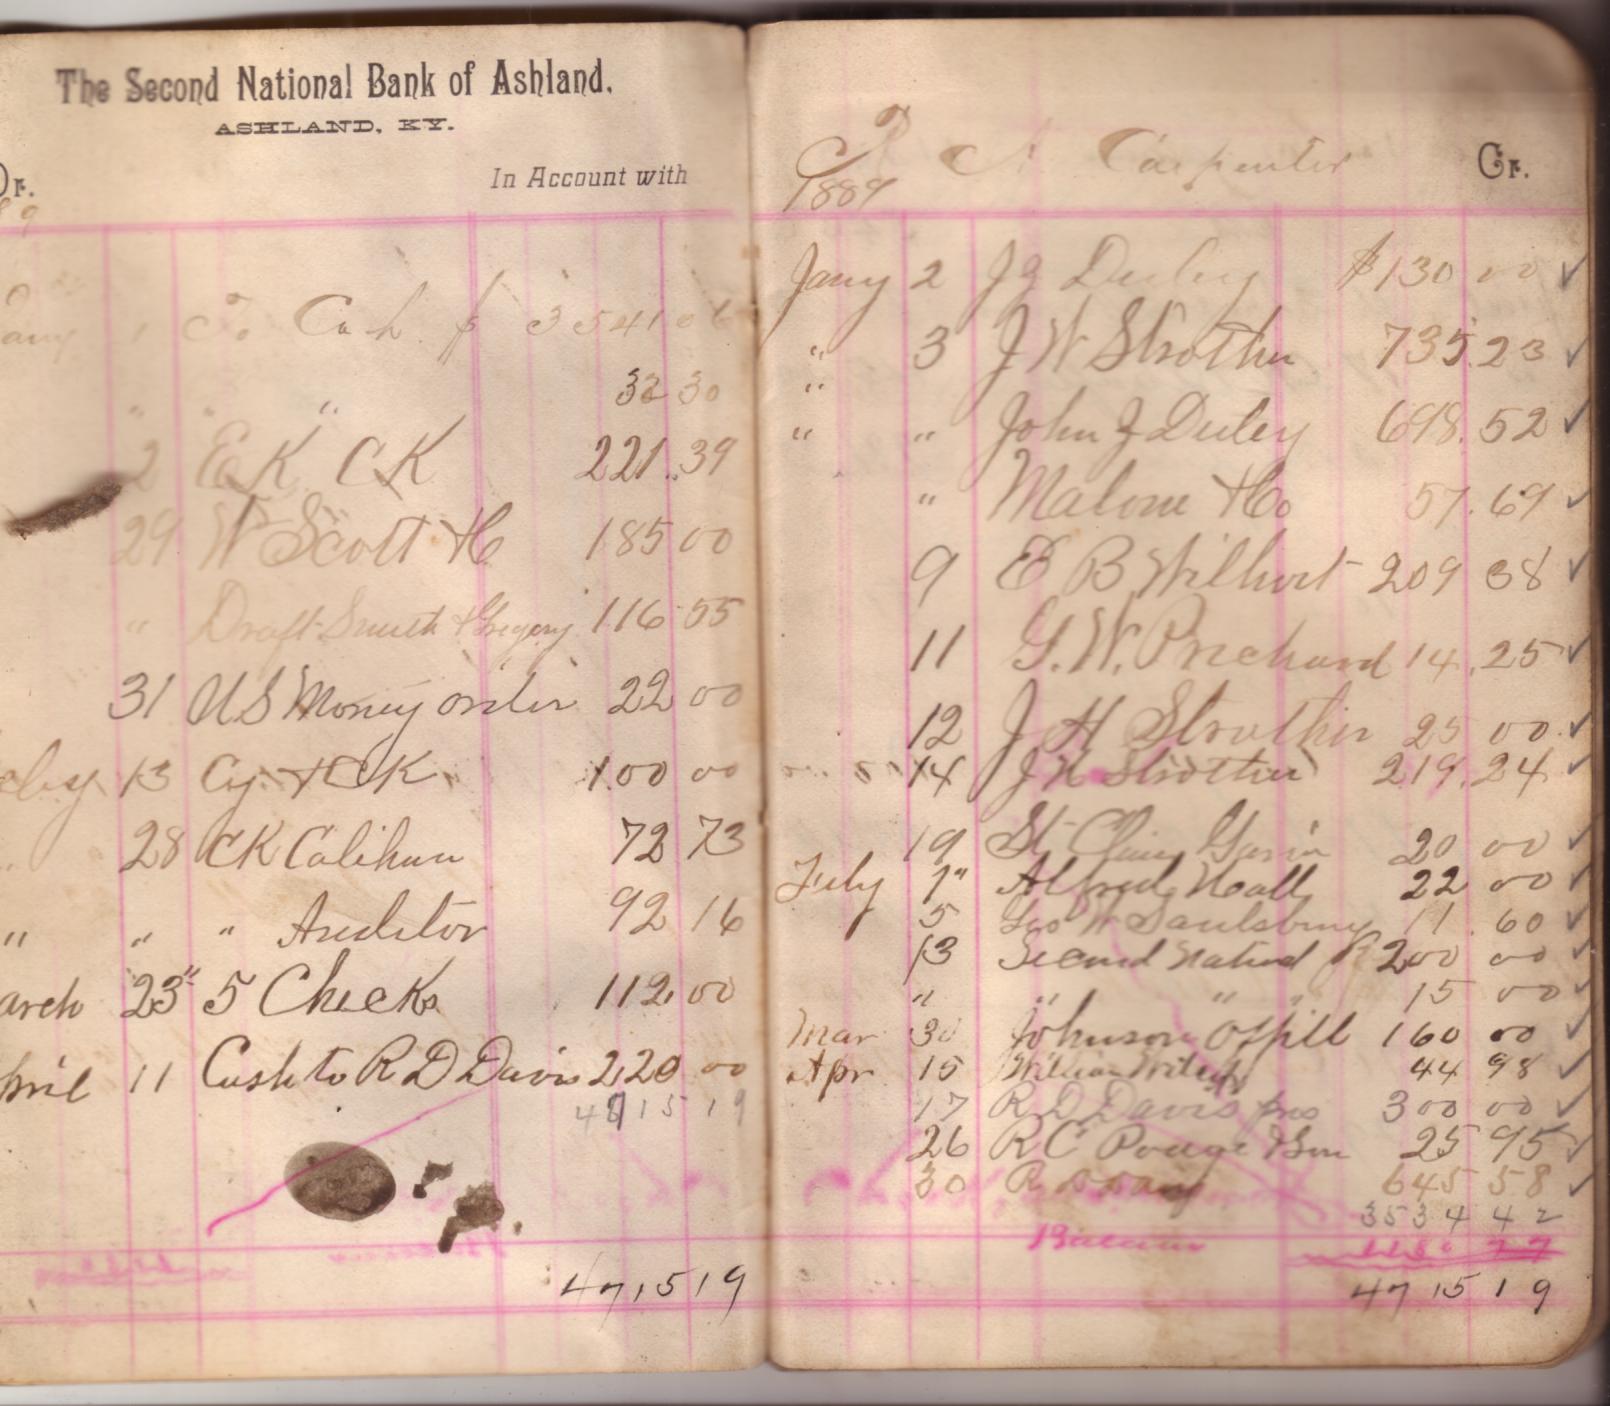 The Second National Bank of Ashland.
ASHLAND, KY.
Dr. In Account with
89
Jany 1 To Cash $ 3541 06
32 30
" " "
2 E K C K 221.39
29 W Scott & C 185 00
" Draft Smith & Gregory 116 55
31 US Money order 22 00
13 Cy & CK 100 00
28 CK Calihan 72 73
" " " Auditor 92 16
arch 23" 5 Checks 112 00
pril 11 Cash to R D Davis 220 00
4715 19
4715 19
A Carpenter Cr.
1889
Jany 2 J J Duley $130 00 ✓
" 3 J W Strother 735.23 ✓
"
" " John J Duley 698.52 ✓
" Malone & Co 57.69 ✓
9 E B Wilhoit 209 38 ✓
11 G. W. Prichard 14.25 ✓
12 J H Strother 25 00 ✓
14 J H Strother 219.24 ✓
19 St Clair 20 00 ✓
July 1" Alfred Neall 22 00 ✓
5 Geo W Saulsbury 11.60 ✓
13 Second National B 200 00 ✓
" " " " 15 00 ✓
Mar 30 Johnson Offill 160 00 ✓
Apr 15 William 44 98 ✓
17 R D Davis pres 300 00 ✓
26 R C Pouge & Son 25 95 ✓
30 R D Davis 645 58 ✓
3534 42
Balance 1180 77
4715 19